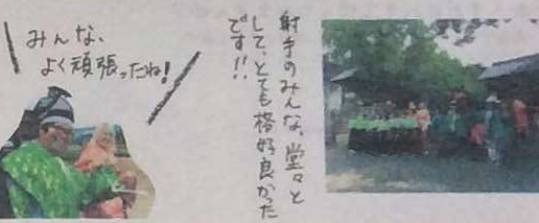 射手のみんな、堂々と
して、とても格好良かった
です!!
みんな、
よく頑張ったね!